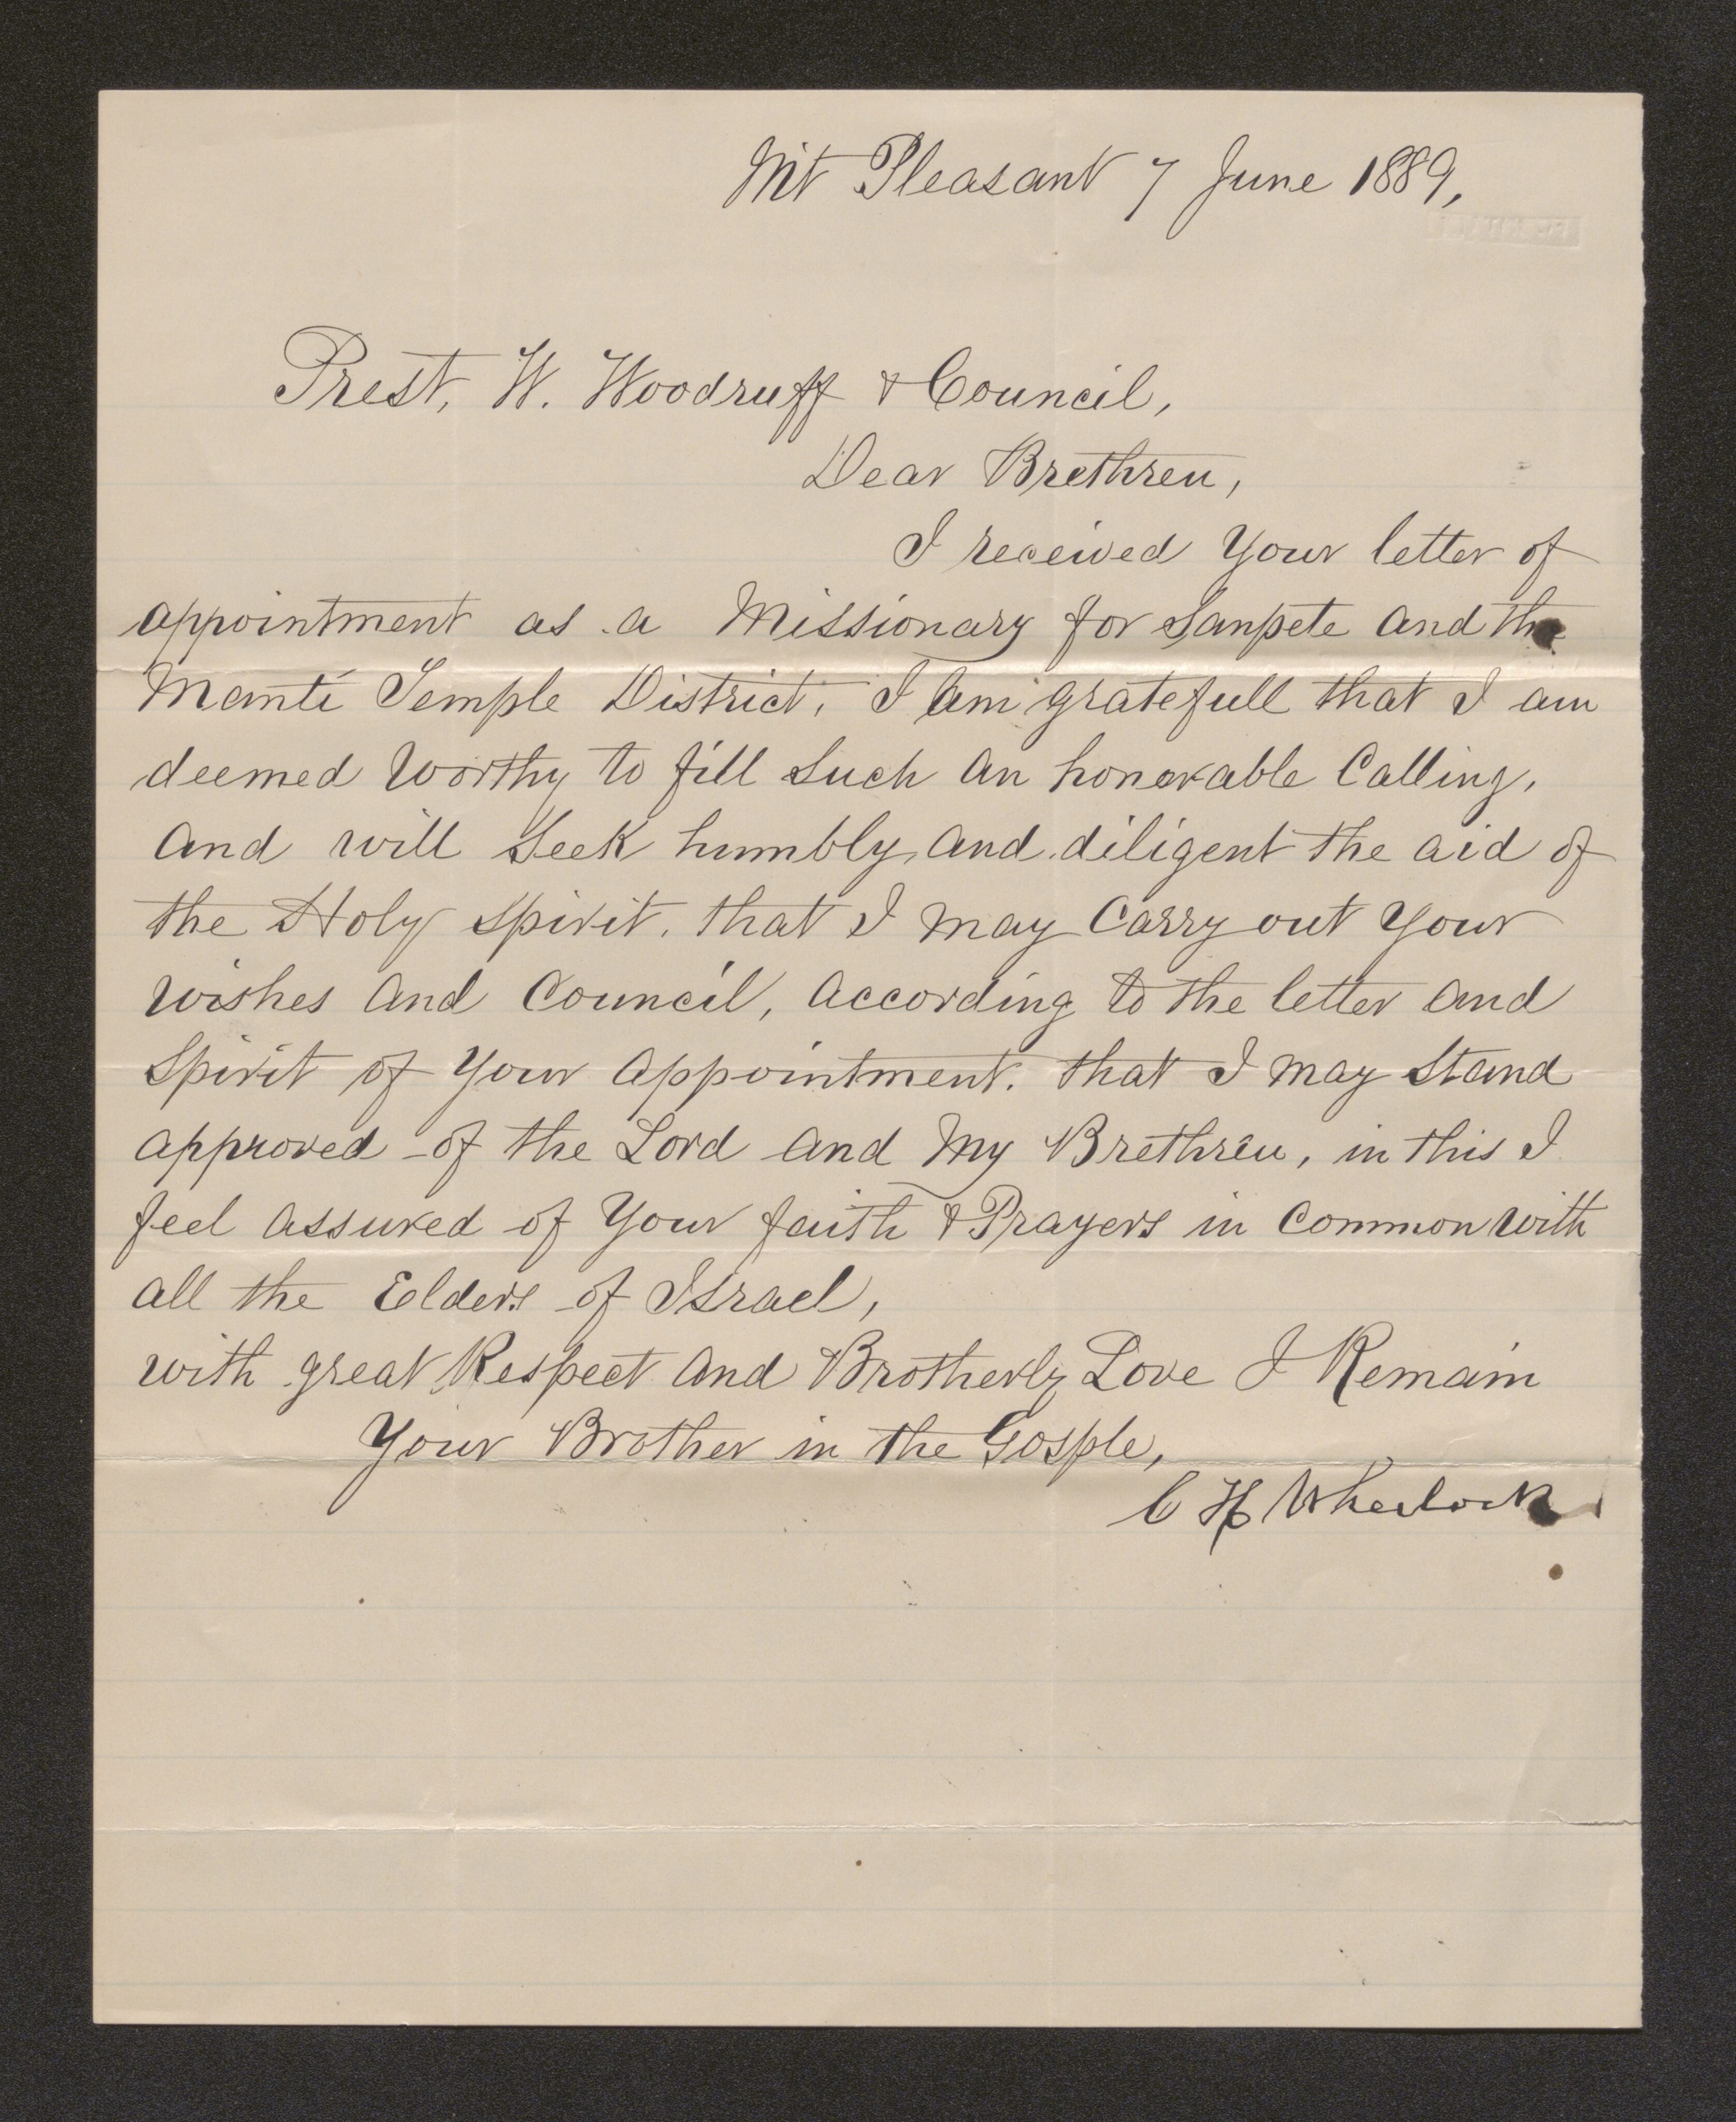 Mt Pleasant 7 June 1889,
Prest, W. Woodruff & Council,
Dear Brethren,
I received Your letter of
appointment as a Missionary for Sanpete and the
Manti Temple District, I am gratefull that I am
deemed worthy to fill Such an honorable Calling,
and will Seek humbly and diligent the aid of
the Holy Spirit, that I may Carry out Your
wishes and Council, according to the letter and
Spirit of Your appointment. that I may Stand
approved of the Lord and My Brethren, in this I
feel assured of Your faith & Prayers in Common with
all the Elders of Israel,
with great Respect and Brotherly Love I Remain
Your Brother in the Gosple,
C H Wheelock